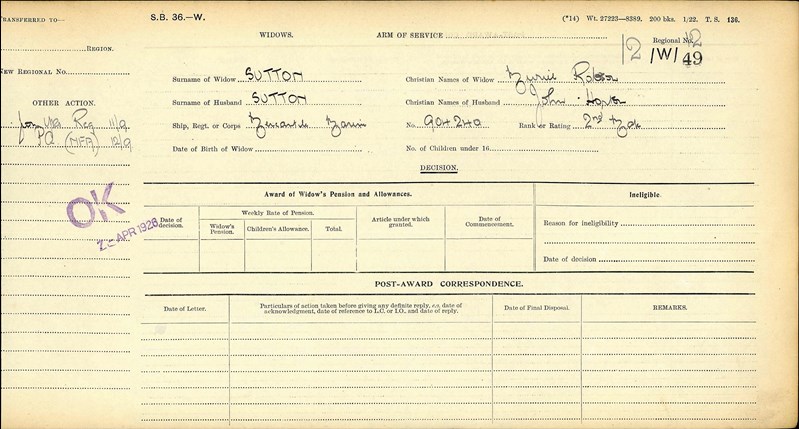 TRANSFERRED TO—
S.B. 36.—W.
(*14) Wt. 27223—8389. 200 bks. 1/22. T. S. 136.
WIDOWS. ARM OF SERVICE
REGION.
12 Regional No. 12
/W/ 49
NEW REGIONAL No.
Surname of Widow SUTTON Christian Names of Widow
OTHER ACTION.
Surname of Husband SUTTON Christian Names of Husband John
Reg 11/9
Ship, Regt. or Corps Mercantile Marine No. 904240 Rank or Rating 2nd Mate
PA (MFA) 12/9
Date of Birth of Widow No. of Children under 16
DECISION.
Award of Widow's Pension and Allowances. Ineligible.
OK
Date of decision. Weekly Rate of Pension. Article under which granted. Date of Commencement.
Widow's Pension. Children's Allowance. Total.
Reason for ineligibility
APR 1926
Date of decision
POST-AWARD CORRESPONDENCE.
Date of Letter. Particulars of action taken before giving any definite reply, e.g. date of acknowledgment, date of reference to L.C. or I.O., and date of reply. Date of Final Disposal. REMARKS.